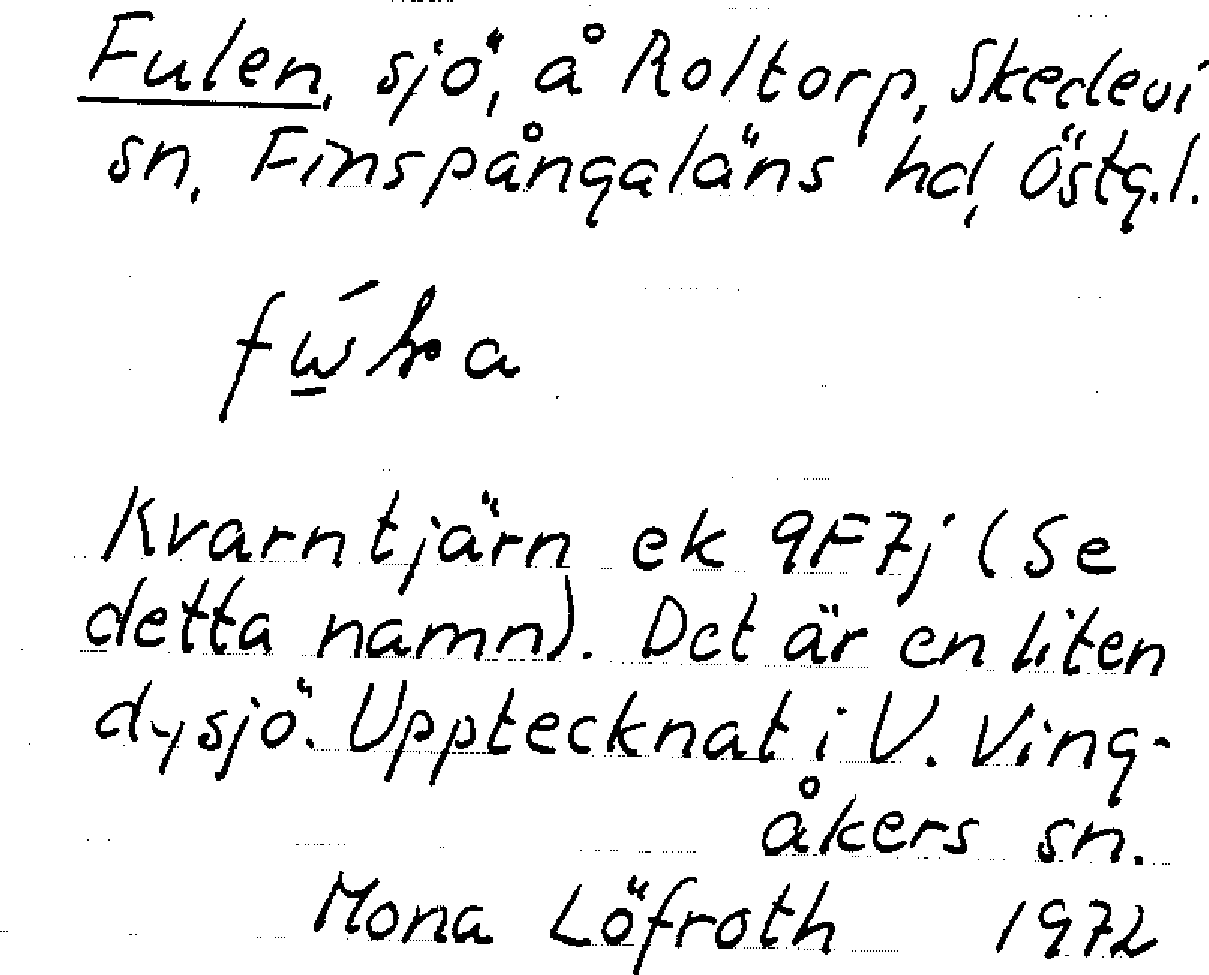 Fulen, sjö, å Roltorp, Skedevi
sn, Finspångaläns hd, Östg.l.
Kvarntjärn ek 9F7j (Se
detta namn). Det är en liten
dysjö. Upptecknat i V. Ving-
åkers sn.
Mona Löfroth 1972